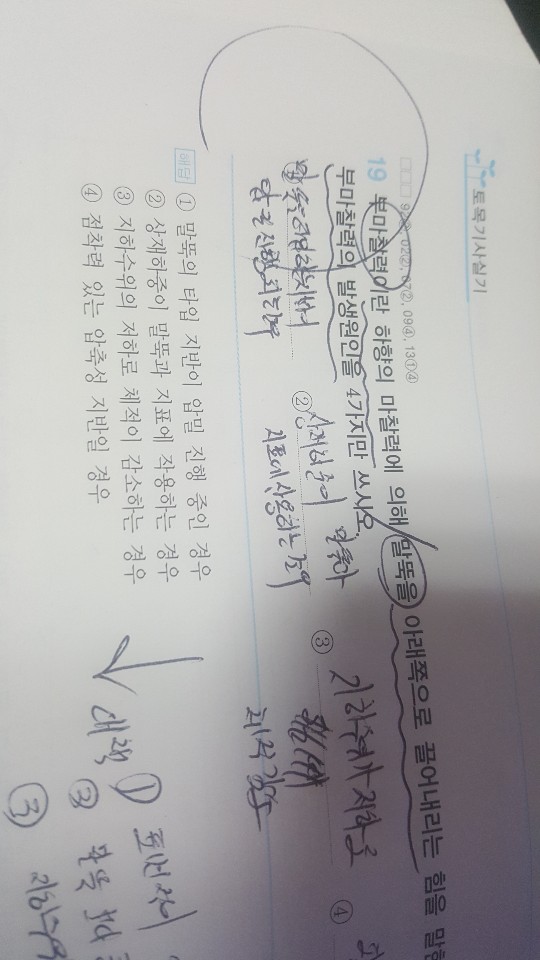 토목기사실기
92②, 02②, 07②, 09④, 13①④
19 부마찰력이란 하향의 마찰력에 의해 말뚝을 아래쪽으로 끌어내리는 힘을 말한
부마찰력의 발생원인을 4가지만 쓰시오.
① ② 상재하중이 말뚝과 ③ 지하수위가 저하로 ④
지표에 작용하는 경우
체적감소
해답 ① 말뚝의 타입 지반이 압밀 진행 중인 경우
② 상재하중이 말뚝과 지표에 작용하는 경우
③ 지하수위의 저하로 체적이 감소하는 경우
④ 점착력 있는 압축성 지반일 경우
대책 ①
② 말뚝
③ 지하수위